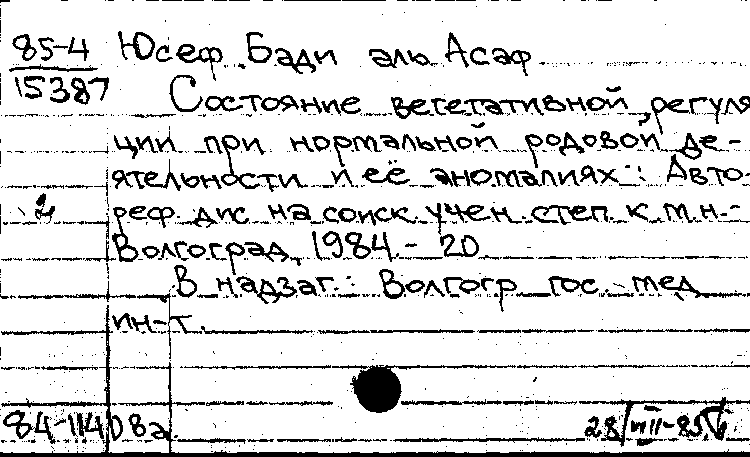 85-4 Юсеф Бади аль Асаф
15387
Состояние вегетативной регуля
ции при нормальной родовой де-
ятельности и её аномалиях: Авто-
2 реф. дис на соиск. учен. степ. к.м.н.-
Волгоград, 1984. - 20
В надзаг.: Волгогр гос. мед
ин-т.
84-11408а 28/VIII-85